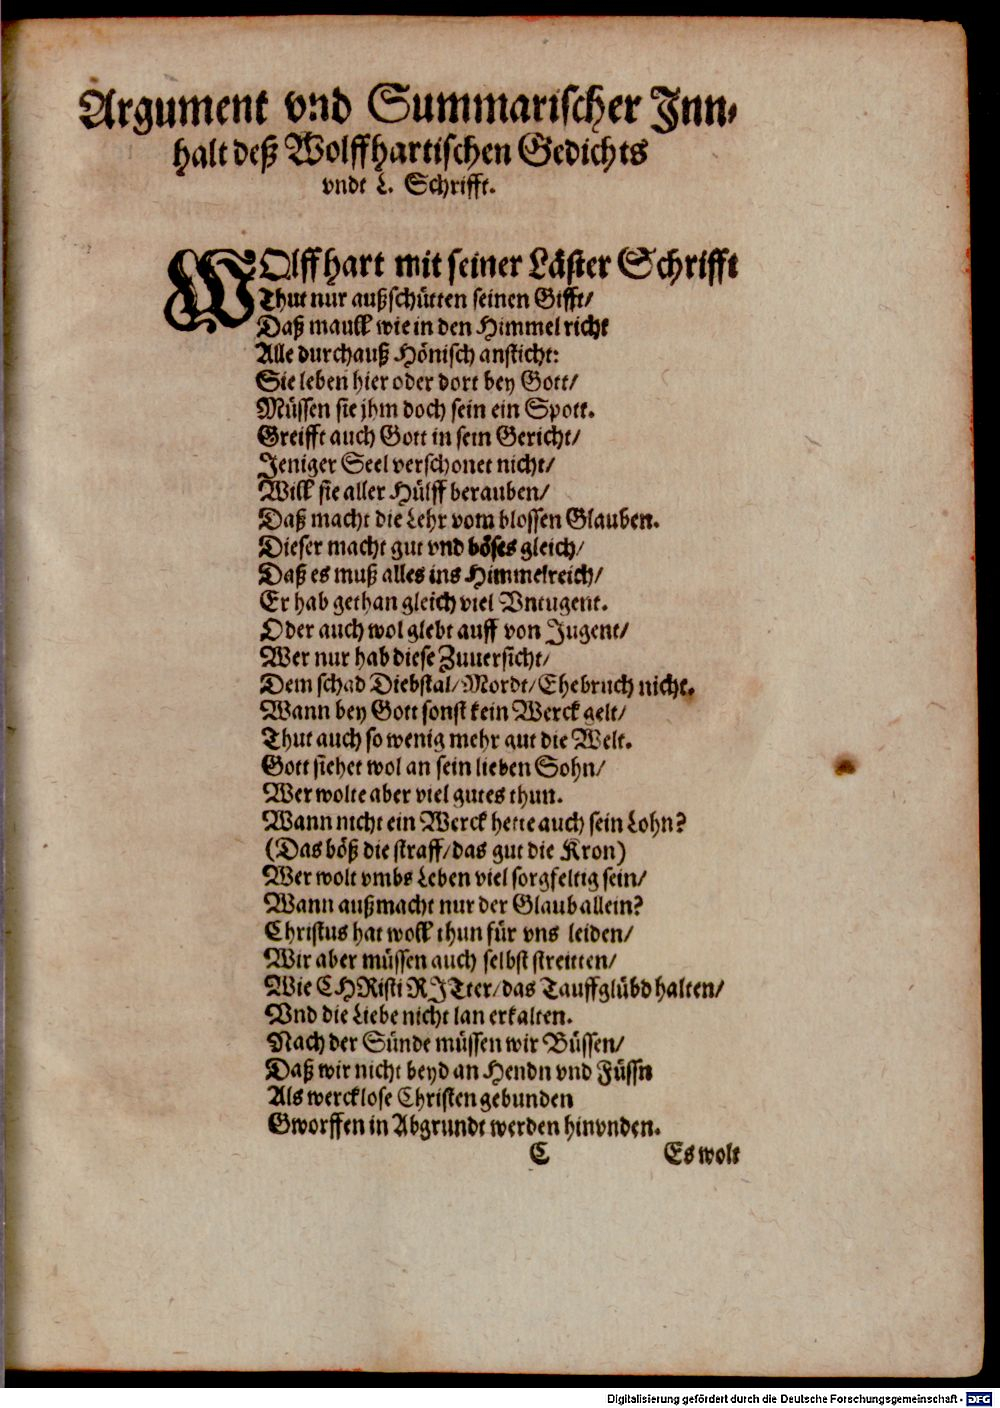 Argument vnd Summarischer Inn-
halt deß Wolffhartischen Gedichts
vndt L. Schrifft.
WOlffhart mit seiner Läster Schrifft
Thut nur außschütten seinen Gifft/
Daß maull wie in den Himmel richt
Alle durchauß Hönisch ansticht:
Sie leben hier oder dort bey Gott/
Müssen sie jhm doch sein ein Spott.
Greifft auch Gott in sein Gericht/
Jeniger Seel verschonet nicht/
Will sie aller Hülff berauben/
Daß macht die Lehr vom blossen Glauben.
Dieser macht gut vnd böses gleich/
Daß es muß alles ins Himmelreich/
Er hab gethan gleich viel Vntugent.
Oder auch wol glebt auff von Jugent/
Wer nur hab diese Zuuersicht/
Dem schad Diebstal/Mordt/Ehebruch nicht.
Wann bey Gott sonst kein Werck gelt/
Thut auch so wenig mehr gut die Welt.
Gott siehet wol an sein lieben Sohn/
Wer wolte aber viel gutes thun.
Wann nicht ein Werck hette auch sein Lohn?
(Das böß die straff/das gut die Kron)
Wer wolt vmbs Leben viel sorgfeltig sein/
Wann außmacht nur der Glaub allein?
Christus hat woll thun für vns leiden/
Wir aber müssen auch selbst streitten/
Wie CHRisti RITter/das Tauffglübd halten/
Vnd die Liebe nicht lan erkalten.
Nach der Sünde müssen wir Büssen/
Daß wir nicht beyd an Hendn vnd Füssn
Als wercklose Christen gebunden
Gworffen in Abgrundt werden hinvnden.
C Es wolt
Digitalisierung gefördert durch die Deutsche Forschungsgemeinschaft - DFG